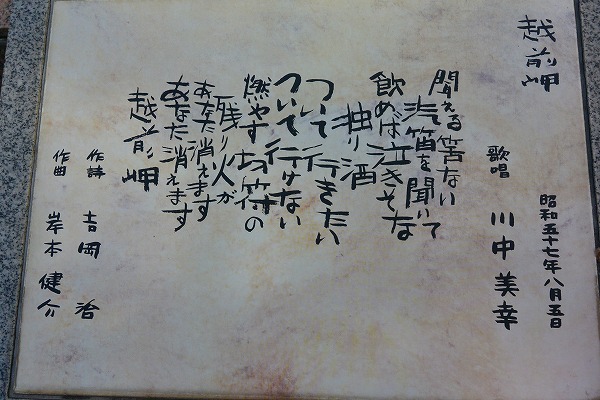 越前岬
昭和五十七年八月五日
歌唱 川中美幸
聞える筈ない
汽笛を聞いて
飲めば泣きそな
独り酒
ついて行きたい
ついて行けない
燃やす切符の
残り火が
あなた消えます
あなた消えます
越前岬
作詩 吉岡治
作曲 岸本健介